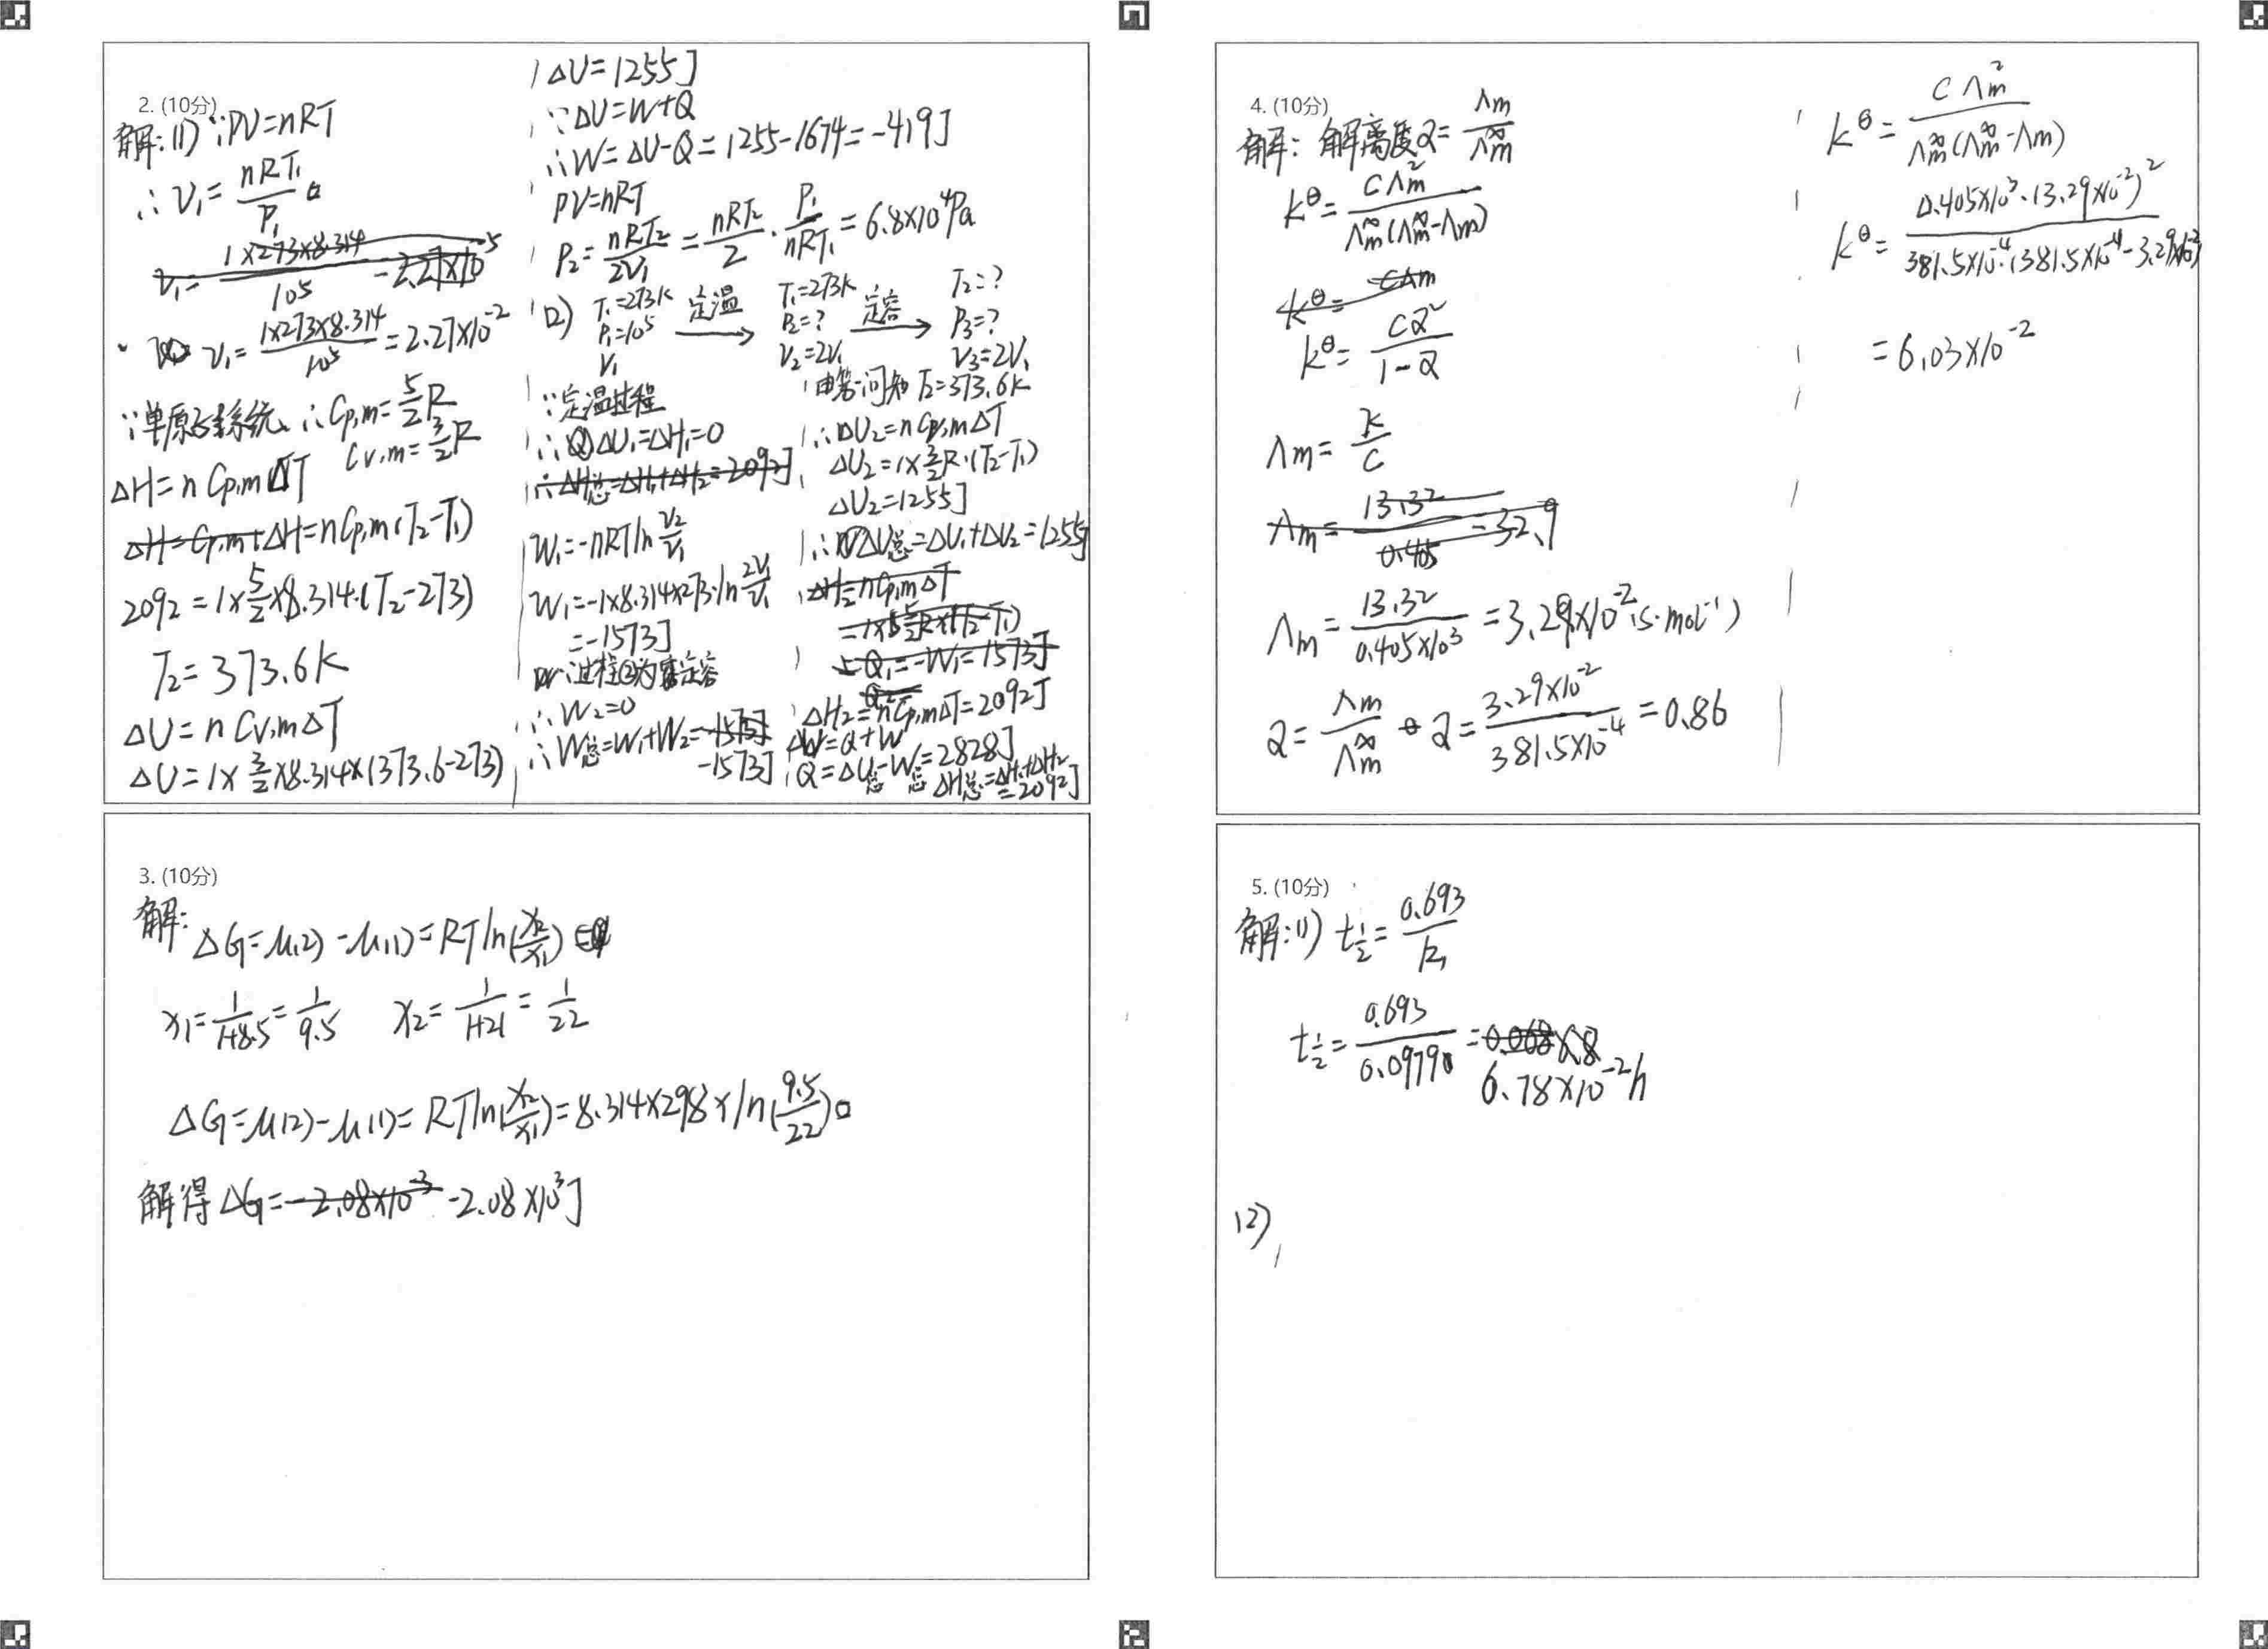 2. (10分)
解: (1) ∵PV=nRT
∴ V₁ = nRT₁/P₁
V₁ = 1×273×8.314/10⁵ = 2.27×10⁻²
∵单原子系统 ∴Cp,m = 5/2 R
Cv,m = 3/2 R
ΔH = n Cp,m ΔT
ΔH = nCp,m(T₂-T₁)
2092 = 1×5/2×8.314·(T₂-273)
T₂ = 373.6K
ΔU = n Cv,m ΔT
ΔU = 1×3/2×8.314×(373.6-273)
ΔU = 1255J
∵ΔU = W+Q
∴W = ΔU-Q = 1255-1674 = -419J
PV = nRT
P₂ = nRT₂/2V₁ = nRT₂/2 · P₁/nRT₁ = 6.8×10⁴Pa
(2) T₁=273K 定温 T₁=273K 定容 T₂=?
P₁=10⁵ → P₂=? → P₃=?
V₁ V₂=2V₁ V₃=2V₁
∵定温过程
∴①ΔU₁=ΔH₁=0
W₁ = -nRT ln V₂/V₁
W₁ = -1×8.314×273·ln 2V₁/V₁
= -1573J
∵过程②为定容
∴W₂=0
∴W总=W₁+W₂=
-1573J
由第一问知 T₂=373.6K
∴ΔU₂ = n Cp,m ΔT
ΔU₂ = 1×3/2 R·(T₂-T₁)
ΔU₂ = 1255J
∴ΔU总=ΔU₁+ΔU₂=1255J
ΔH₂ = nCp,mΔT = 2092J
ΔU=Q+W
Q=ΔU总-W总=2828J
ΔH总=ΔH₁+ΔH₂
=2092J
3. (10分)
解:
ΔG = μ(2) - μ(1) = RT ln(x₂/x₁)
x₁ = 1/1+8.5 = 1/9.5 x₂ = 1/1+21 = 1/22
ΔG = μ(2)-μ(1) = RT ln(x₂/x₁) = 8.314×298×ln(9.5/22)
解得 ΔG = -2.08×10³J
4. (10分)
解: 解离度α = Λm/Λm∞
k^θ = CΛm²/Λm∞(Λm∞-Λm)
k^θ = Cα²/1-α
Λm = k/C
Λm = 13.32/0.405×10³ = 3.29×10⁻²(S·mol⁻¹)
α = Λm/Λm∞ α = 3.29×10⁻²/381.5×10⁻⁴ = 0.86
k^θ = CΛm²/Λm∞(Λm∞-Λm)
k^θ = 0.405×10³·(3.29×10⁻²)²/381.5×10⁻⁴·(381.5×10⁻⁴-3.29×10⁻²)
= 6.03×10⁻²
5. (10分)
解: (1) t½ = 0.693/k₁
t½ = 0.693/0.0979 =
6.78×10⁻²h
(2)